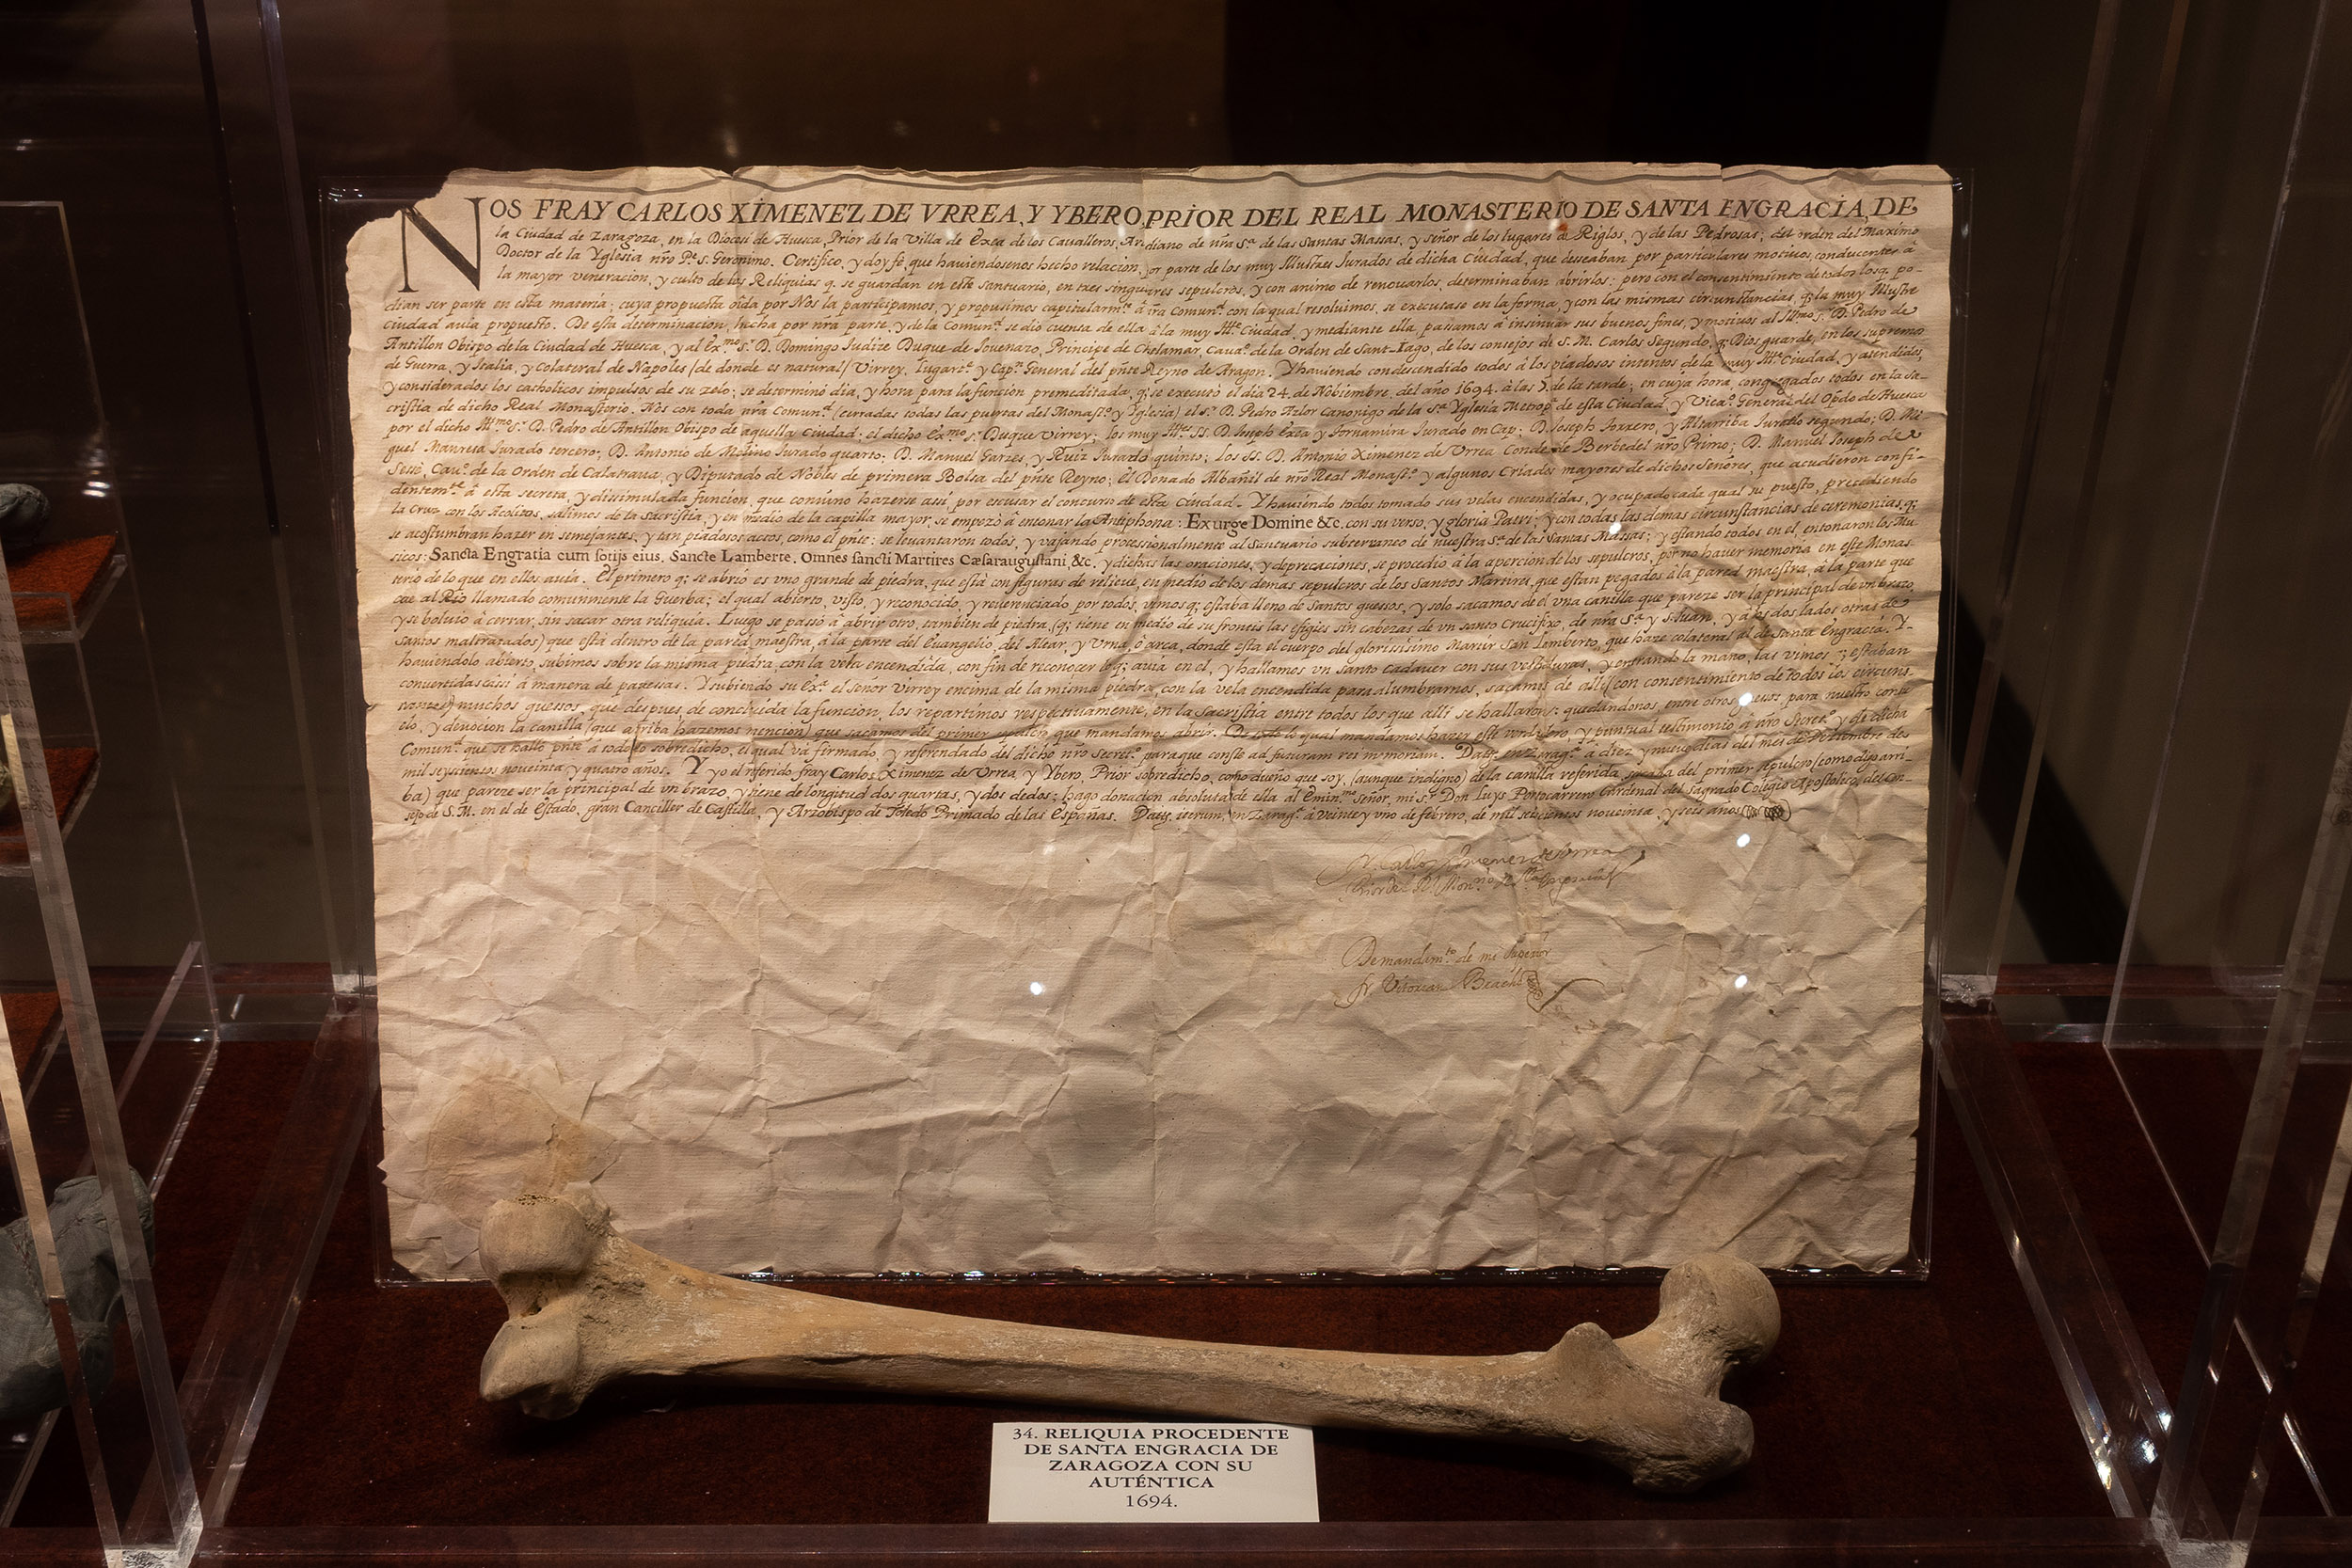 NOS FRAY CARLOS XIMENEZ DE VRREA, Y YBERO, PRIOR DEL REAL MONASTERIO DE SANTA ENGRACIA, DE
la Ciudad de Zaragoza, en la Diocesi de Huesca, Prior de la Villa de Exea de los Cavalleros, Ardiano de nr̃a Sª. de las Santas Massas, y señor de los lugares de Riglos, y de las Pedrosas; del orden del Maximo
Doctor de la Yglesia nr̃o Pe. S. Geronimo. Certifico, y doy fè, que haviendosenos hecho relacion, por parte de los muy Illustres Iurados de dicha Ciudad, que desseaban por particulares motivos, conducentes à
la mayor veneracion, y culto de las Reliquias q. se guardan en este santuario, en tres singulares sepulcros, y con animo de renovarlos, determinaban abrirlos: pero con el consentimiento de todos los q. po-
dian ser parte en esta materia; cuya propuesta oida por Nos la participamos, y propusimos capitularmte. à nr̃a Comund. con la qual resoluimos, se executase en la forma, y con las mismas circunstancias, q. la muy Illustre
Ciudad auia propuesto. De esta determinacion, hecha por nr̃a parte, y de la Comund. se diò cuenta de ella à la muy Illte. Ciudad, y mediante ella, passamos à insinuar sus buenos fines, y motivos al Illmo. Sr. D. Pedro de
Antillon Obispo de la Ciudad de Huesca, y al Exmo. Sr. D. Domingo Iudize Duque de Iovenazo, Principe de Chelamar, Cauo. de la Orden de Sant-Iago, de los consejos de S. M. Carlos Segundo, q. Dios guarde, en los supremos
de Guerra, y Italia, y Colateral de Napoles (de donde es natural) Virrey, Lugarte. y Capn. General del pñte Reyno de Aragon. Y haviendo condescendido todos à los piadosos intentos de la muy Illte. Ciudad, y atendidos,
y considerados los catholicos impulsos de su zelo; se determinò dia, y hora para la funcion premeditada, q. se executò el dia 24. de Nobiembre, del año 1694. à las de la tarde; en cuya hora, congregados todos en la Sa-
cristia de dicho Real Monasterio. Nos con toda nr̃a Comund. (cerradas todas las puertas del Monasto. y Yglesia) el Sr. D. Pedro Azlor Canonigo de la Sta. Yglesia Metropa. de esta Ciudad, y Vicao. General del Opdo de Huesca
por el dicho Illmo. Sr. D. Pedro de Antillon Obispo de aquella Ciudad; el dicho Exmo. Sr. Duque Virrey; los muy Illes. SS. D. Ioseph Exea y Fornamira Iurado en Cap; D. Ioseph, y Altarriba Iurado segundo; D. Mi-
guel Iurado tercero; D. Antonio de Molino Iurado quarto; D. Manuel Garzes, y Ruiz Iurado quinto; los SS. D. Antonio Ximenez de Vrrea Conde de Berbedel nr̃o Primo; D. Manuel Ioseph de
Sessè, Cauo. de la Orden de Calatraua, y Diputado de Nobles de primera Bolsa del pñte Reyno; el Donado Albañil de nr̃o Real Monasto. y algunos Criados mayores de dichos Señores, que acudieron confi-
dentemte. à esta secreta, y dissimulada funcion, que convino hazerse assi, por escusar el concurso de esta Ciudad. Y haviendo todos tomado sus velas encendidas, y ocupado cada qual su puesto, precediendo
la Cruz con los Acolitos, salimos de la Sacristia, y en medio de la capilla mayor, se empezò à entonar la Antiphona: Exurge Domine &c. con su verso, y gloria Patri; y con todas las demas circunstancias de ceremonias, q.
se acostumbran hazer en semejantes, y tan piadosos actos, como el pñte; se levantaron todos, y vajando processionalmente al Santuario subterraneo de nuestra Sª. de las Santas Massas; y estando todos en el, entonaron los Mu-
sicos: Sancta Engratia cum sotijs eius, Sancte Lamberte, Omnes sancti Martires Cæsaraugustani &c. y dichas las oraciones, y deprecaciones, se procediò à la apercion de los sepulcros, por no haver memoria en este Monas-
terio de lo que en ellos auia. El primero q. se abriò es vno grande de piedra, que està con figuras de relieve, en medio de los demas sepulcros de los Santos Martires, que estan pegados à la pared maestra, à la parte que
cae al Rio llamado comunmente la Guerba; el qual abierto, visto, y reconocido, y reuerenciado por todos, vimos q. estaba lleno de Santos guessos, y solo sacamos de èl vna canilla que pareze ser la principal de un brazo,
y se boluiò à cerrar, sin sacar otra reliquia. Luego se passò à abrir otro, tambien de piedra, (q. tiene en medio de su frontis las efigies sin cabezas de vn santo Crucifixo, de nr̃a Sª. y S. Iuan, y à los dos lados otras de
Santos maltratados) que està dentro de la pared maestra, à la parte del Euangelio, del Altar, y Vrna, ò arca, donde està el cuerpo del gloriosissimo Martir san Lamberto, que haze colateral al de santa Engracia. Y
haviendolo abierto, subimos sobre la misma piedra, con la vela encendida, con fin de reconocer lo q. auia en el, y hallamos vn santo Cadaver con sus vestiduras, y entrando la mano, las vimos q. estaban
convertidas cassi à manera de pavessas. Y subiendo su Exª. el señor Virrey encima de la misma piedra, con la vela encendida para alumbrarnos, sacamos de alli (con consentimiento de todos los circuns-
tantes) muchos guessos, que despues de concluida la funcion, los repartimos respectiuamente, en la Sacristia entre todos los que alli se hallaron: quedandonos, entre otros guesos, para nuestro consu-
elo, y devocion la canilla (que arriba hazemos mencion) que sacamos del primer sepulcro que mandamos abrir. De todo lo qual mandamos hazer este verdadero, y puntual testimonio à nr̃o Secreto. y de dicha
Comund. que se hallò pñte à todo lo sobredicho, el qual và firmado, y refrendado del dicho nr̃o Secreto. para que conste ad futuram rei memoriam. Datts. en Zaragª. à diez y nueve dias del mes de Deziembre de
mil seyscientos noveinta y quatro años. Y yo el referido fray Carlos Ximenez de Vrrea, y Ybero, Prior sobredicho, como dueño que soy, (aunque indigno) de la canilla referida sacada del primer sepulcro (como digo arri-
ba) que pareze ser la principal de vn brazo, y tiene de longitud dos quartas, y dos dedos; hago donacion absoluta de ella al Eminmo. señor, mi Sr. Don Luys Portocarrero Cardenal del Sagrado Colegio Apostolico, del Con-
sejo de S. M. en el de Estado, gran Canciller de Castilla, y Arzobispo de Toledo Primado de las Españas. Datts. iterum, en Zaragª. à veinte y vno de febrero, de mil seiscientos noveinta, y seis años
fr. Carlos Ximenez de Vrrea
Prior del Rl. Monrio. de Sta. Engracia
De mandamto. de mi Superior
fr.
34. RELIQUIA PROCEDENTE
DE SANTA ENGRACIA DE
ZARAGOZA CON SU
AUTÉNTICA
1694.